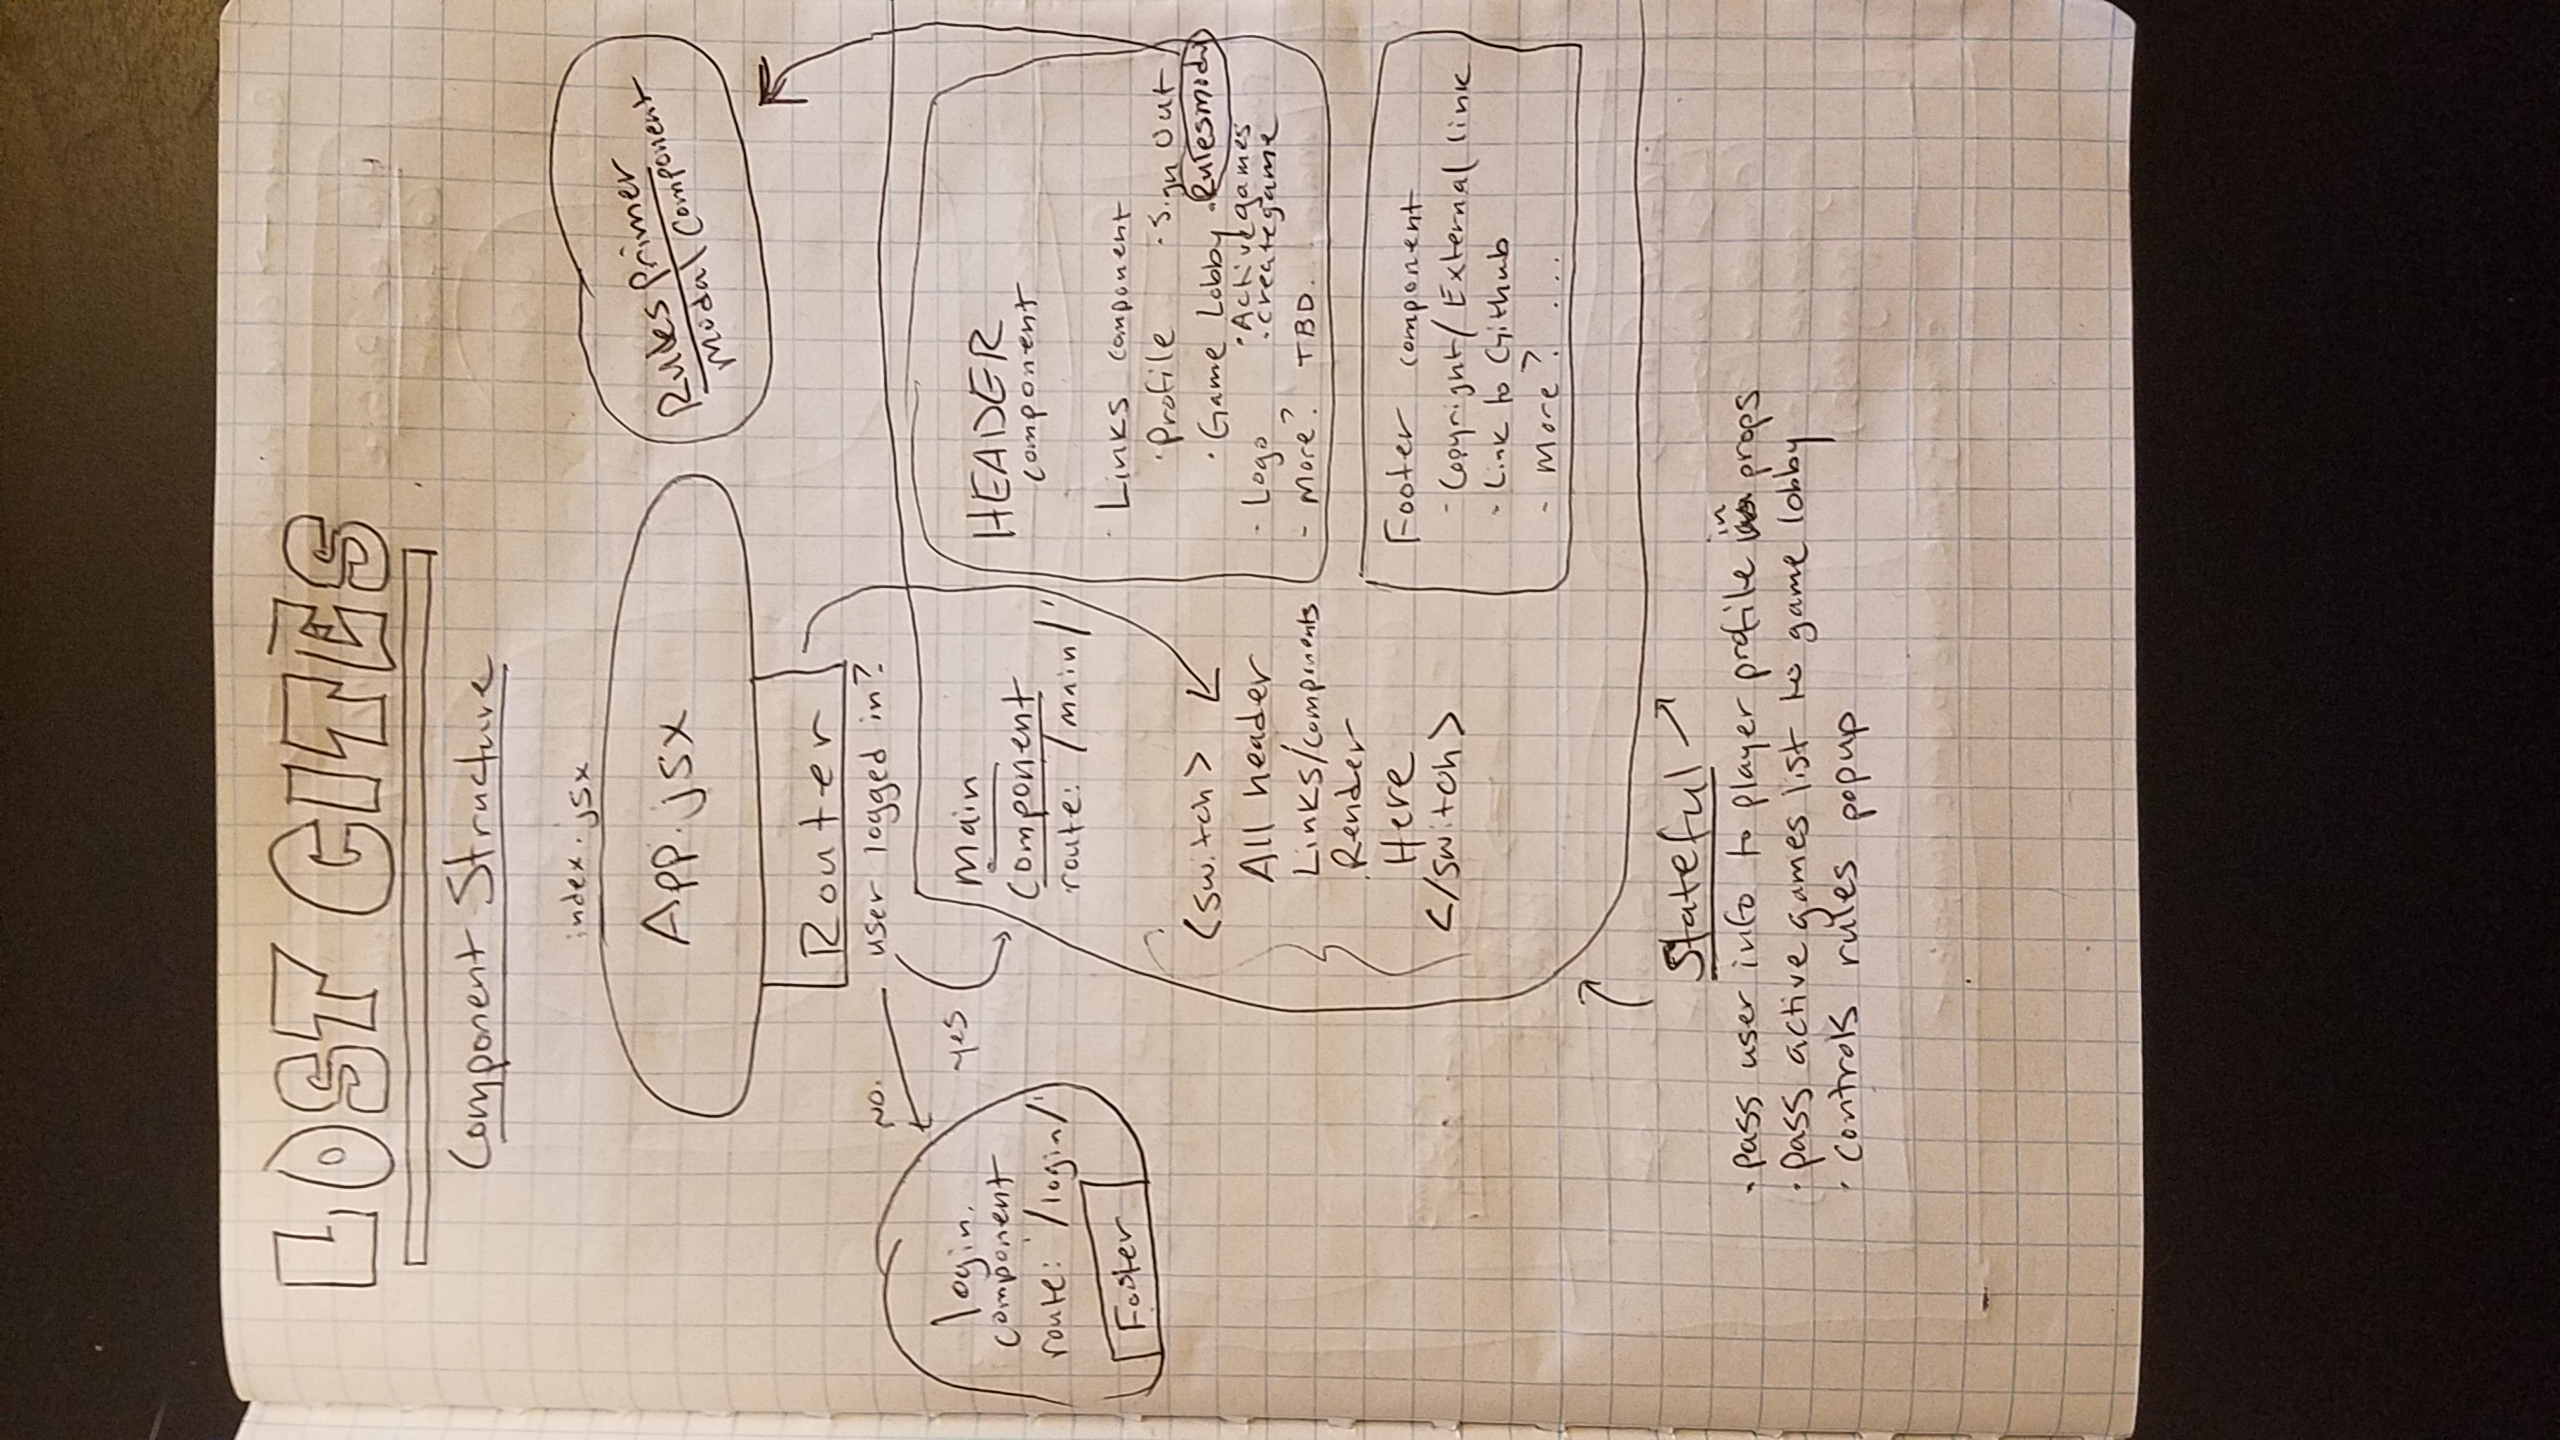 LOST CITIES
Component Structure
index.jsx
App.jsx
Router
user logged in?
NO.
yes
Rules Primer
Modal Component
login
component
route: /login/
Footer
main
component
route: /main/
<switch>
All header
Links/components
Render
Here
</switch>
HEADER
component
- Links component
· Profile · Sign Out
· Game Lobby · Rulesmodal
· Active games
· creategame
- Logo
- More? TBD...
Footer component
- Copyright/External link
- Link to Github
- More? ....
Stateful
· pass user info to player profile in props
· pass active games list to game lobby
· controls rules popup